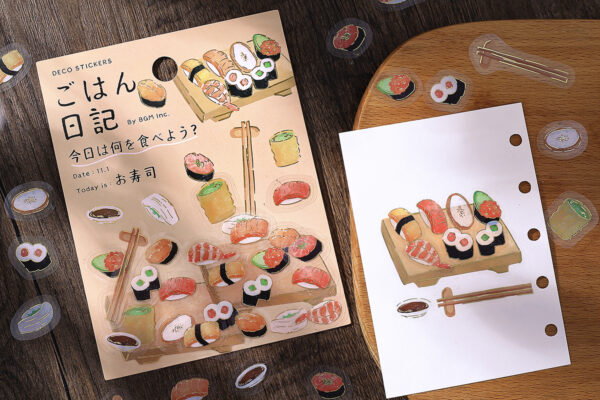 DECO STICKERS
ごはん
日記
By BGM Inc.
今日は何を食べよう?
Date : 11.1
Today is : お寿司